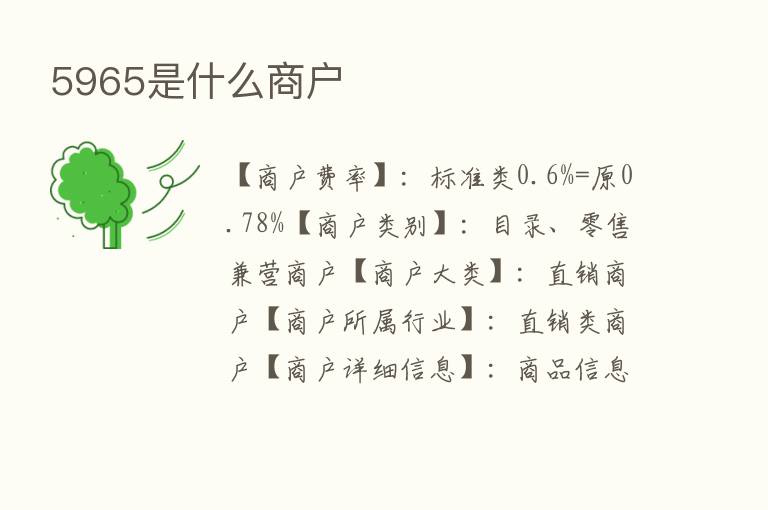 5965是什么商户
【商户费率】：标准类0.6%=原0
.78%【商户类别】：目录、零售
兼营商户【商户大类】：直销商
户【商户所属行业】：直销类商
户【商户详细信息】：商品信息